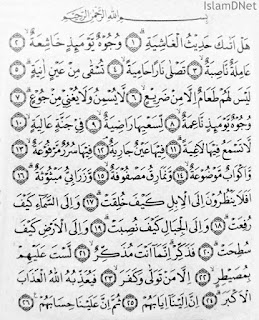 IslamDNet
بِسْمِ اللَّهِ الرَّحْمَٰنِ الرَّحِيمِ
هَلْ أَتَىٰكَ حَدِيثُ الْغَاشِيَةِ ١ وُجُوهٌ يَوْمَئِذٍ خَاشِعَةٌ ٢
عَامِلَةٌ نَاصِبَةٌ ٣ تَصْلَىٰ نَارًا حَامِيَةً ٤ تُسْقَىٰ مِنْ عَيْنٍ اٰنِيَةٍ ٥
لَيْسَ لَهُمْ طَعَامٌ إِلَّا مِنْ ضَرِيعٍ ٦ لَا يُسْمِنُ وَلَا يُغْنِي مِنْ جُوعٍ ٧
وُجُوهٌ يَوْمَئِذٍ نَاعِمَةٌ ٨ لِسَعْيِهَا رَاضِيَةٌ ٩ فِي جَنَّةٍ عَالِيَةٍ ١٠
لَا تَسْمَعُ فِيهَا لَاغِيَةً ١١ فِيهَا عَيْنٌ جَارِيَةٌ ١٢ فِيهَا سُرُرٌ مَرْفُوعَةٌ ١٣
وَأَكْوَابٌ مَوْضُوعَةٌ ١٤ وَنَمَارِقُ مَصْفُوفَةٌ ١٥ وَزَرَابِيُّ مَبْثُوثَةٌ ١٦
أَفَلَا يَنْظُرُونَ إِلَى الْإِبِلِ كَيْفَ خُلِقَتْ ١٧ وَإِلَى السَّمَاءِ كَيْفَ
رُفِعَتْ ١٨ وَإِلَى الْجِبَالِ كَيْفَ نُصِبَتْ ١٩ وَإِلَى الْأَرْضِ كَيْفَ
سُطِحَتْ ٢٠ فَذَكِّرْ إِنَّمَا أَنْتَ مُذَكِّرٌ ٢١ لَسْتَ عَلَيْهِمْ
بِمُصَيْطِرٍ ٢٢ إِلَّا مَنْ تَوَلَّىٰ وَكَفَرَ ٢٣ فَيُعَذِّبُهُ اللَّهُ الْعَذَابَ
الْأَكْبَرَ ٢٤ إِنَّ إِلَيْنَا إِيَابَهُمْ ٢٥ ثُمَّ إِنَّ عَلَيْنَا حِسَابَهُمْ ٢٦